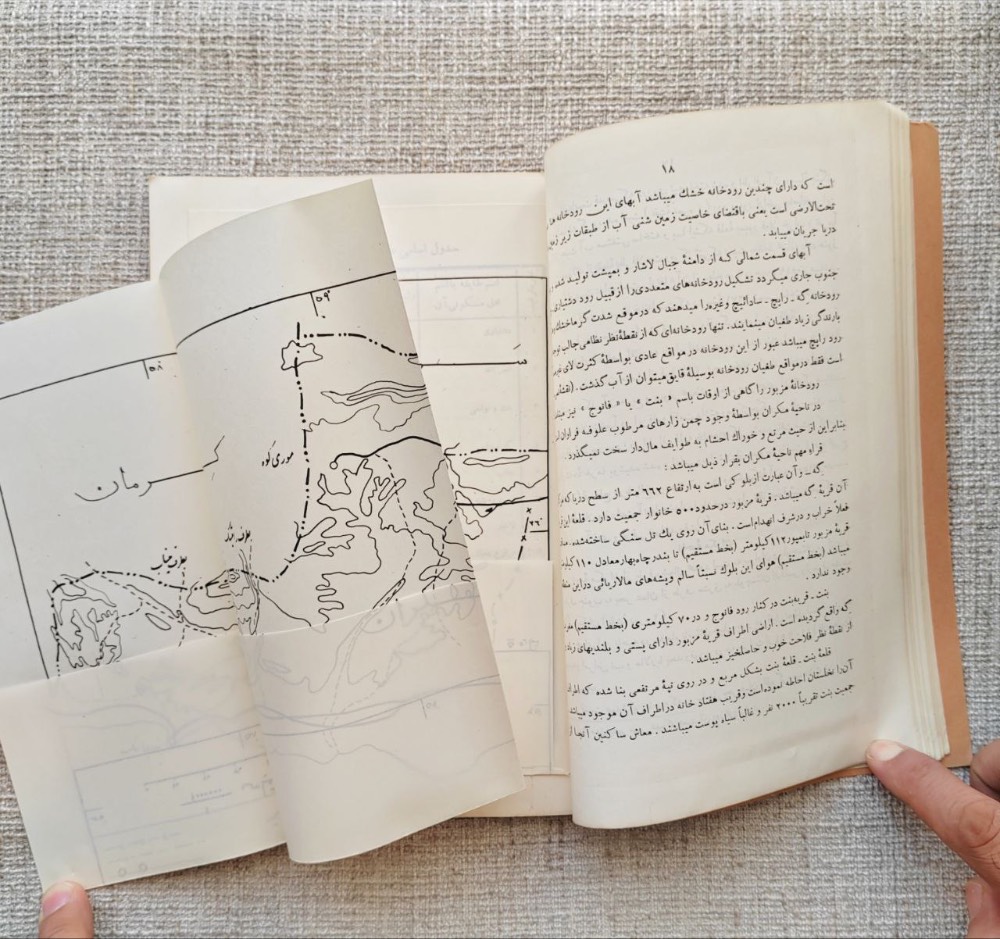 ۱۸
است که دارای چندین رودخانه خشك میباشد آبهای این رودخانه ها
تحت‌الارضی است یعنی باقتضای خاصیت زمین شنی آب از طبقات زیر زمین
دریا جریان مییابد .
آبهای قسمت شمالی کـه از دامنهٔ جبال لاشار و بمپشت تولیـد شده
جنوب جاری میگردد تشکیل رودخانه‌های متعددی‌را از قبیل رود دشتیاری
رودخانه گه ـ راپچ ـ سادایج وغیره‌را میدهند که درموقع شدت گرماخشك
بارندگی زیاد طغیان مینمایند. تنها رودخانه‌ای که ازنقطهٔ‌نظر نظامی جالب توجه
رود راپچ میباشد عبور از این رودخانه در مواقع عادی بواسطهٔ کثرت لای
است فقط درمواقع طغیان رودخانه بوسیلهٔ قایق میتوان از آب گذشت.
رودخانهٔ مزبور را گاهی از اوقات باسم « بنت » یا « فانوج » نیز
در ناحیهٔ مکران بواسطهٔ وجود چمن زارهای مرطوب علوفـه فراوان
بنابراین از حیث مرتع و خوراك احشام به طوایف مال‌دار سخت نمیگذرد .
قراء مهم ناحیهٔ مکران بقرار ذیل میباشد :
گه ـ و آن عبارت ازبلوکی است به ارتفاع ۶۶۲ متر از سطح دریا که
آن قریهٔ گه میباشد . قریهٔ مزبور درحدود ۵۰۰ خانوار جمعیت دارد . قلعهٔ این
فعلاً خراب و درشرف انهدام است . بنای آن روی یك تل سنگی ساخته‌شده
قریهٔ مزبور تابمپور ۱۱۲ کیلومتر (بخط مستقیم) تا بندر چاه‌بهار معادل ۱۱۰
میباشد (بخط مستقیم) هوای این بلوك نسبتاً سالم وپشه‌های مالاریائی دراین
وجود ندارد .
بنت ـ قریه‌بنت در کنار رود فانوج و در ۷۰ کیلومتری (بخط مستقیم)
گه واقع گردیده است . اراضی اطراف قریهٔ مزبور دارای پستی و بلندیهای
از نقطهٔ نظر فلاحت خوب و حاصلخیز میباشد .
قلعهٔ بنت ـ قلعهٔ بنت بشکل مربع و در روی تپهٔ مرتفعی بنا شده که
آن‌را نخلستان احاطه نموده است وقریب هفتاد خانه دراطراف آن موجود
جمعیت بنت تقریباً ۲۰۰۰ نفر و غالباً سیاه پوست میباشند . معاش ساکنین آنجا
۵۹°
۵۸°
موری کوه
کـرمان
۲۶°